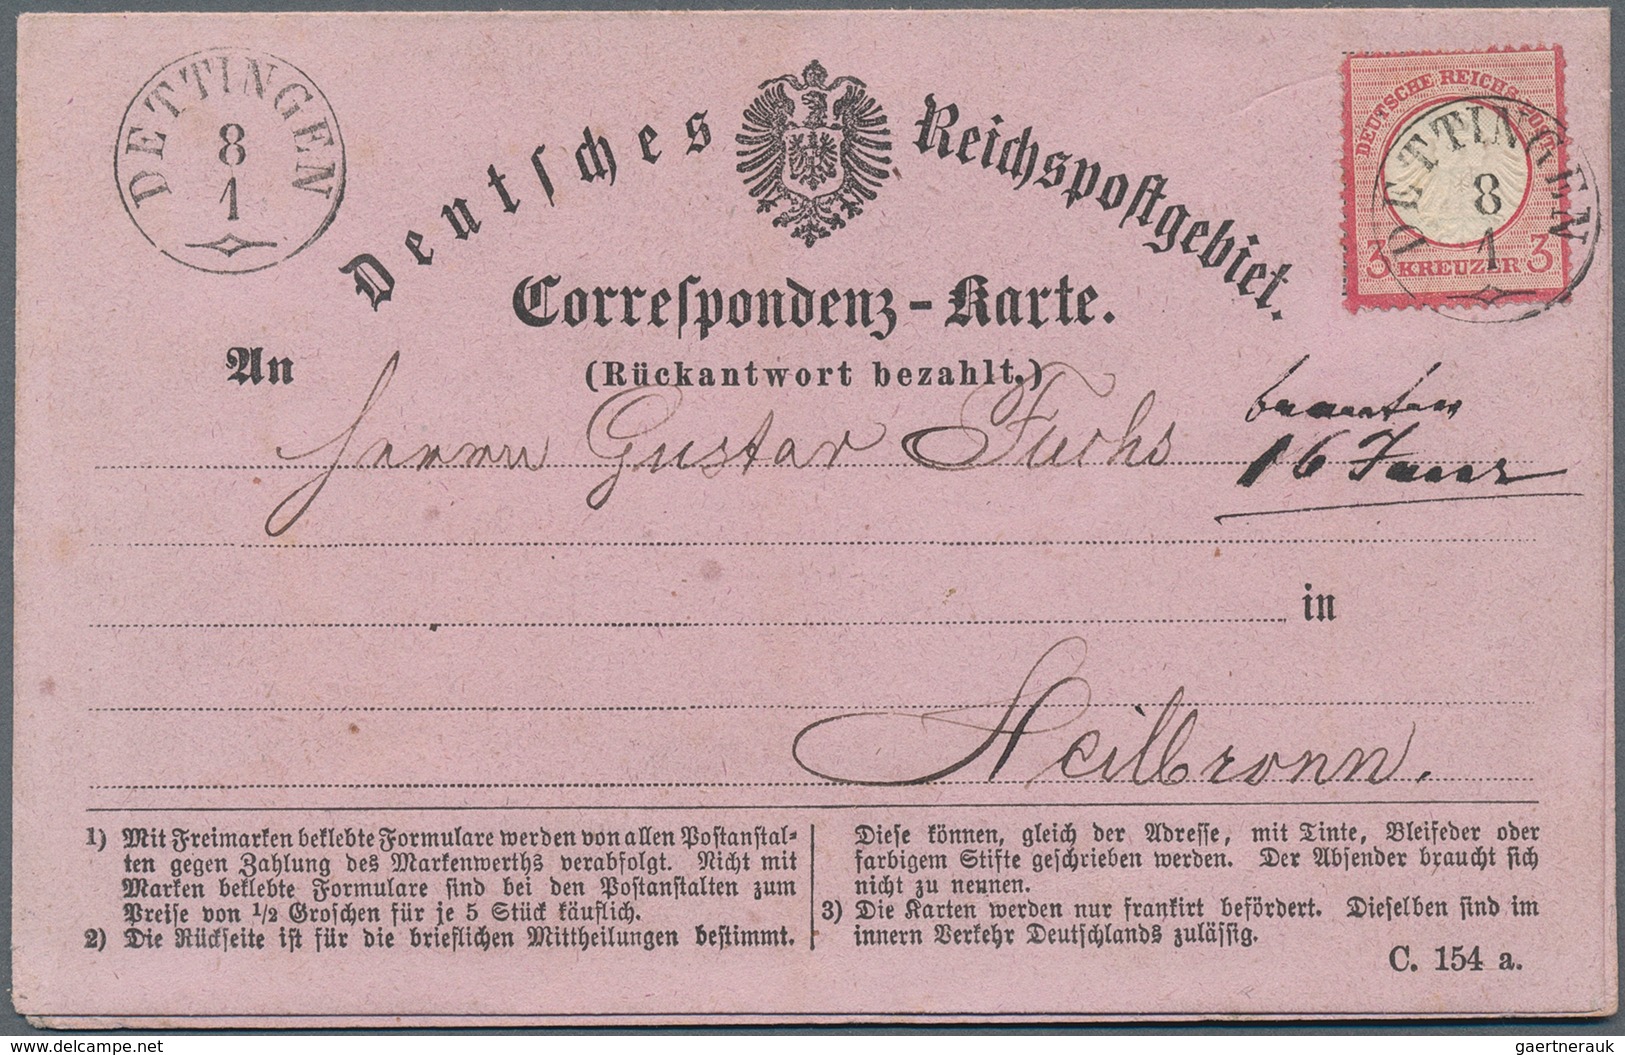 DETTINGEN
8
1
Deutsches Reichspostgebiet.
DEUTSCHE REICHS-POST
3 KREUZER 3
DETTINGEN
8
1
Correspondenz-Karte.
(Rückantwort bezahlt.)
An
Herrn Gustav Fuchs
16
in
Heilbronn.
1) Mit Freimarken beklebte Formulare werden von allen Postanstal-
ten gegen Zahlung des Markenwerths verabfolgt. Nicht mit
Marken beklebte Formulare sind bei den Postanstalten zum
Preise von 1/2 Groschen für je 5 Stück käuflich.
2) Die Rückseite ist für die brieflichen Mittheilungen bestimmt.
Diese können, gleich der Adresse, mit Tinte, Bleifeder oder
farbigem Stifte geschrieben werden. Der Absender braucht sich
nicht zu nennen.
3) Die Karten werden nur frankirt befördert. Dieselben sind im
innern Verkehr Deutschlands zulässig.
C. 154 a.
www.delcampe.net
gaertnerauk